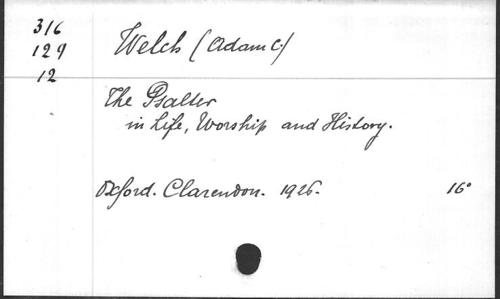 316
129
12
Welch (Adam C.)
The Psalter
in Life, Worship and History.
Oxford. Clarendon. 1926. 16°